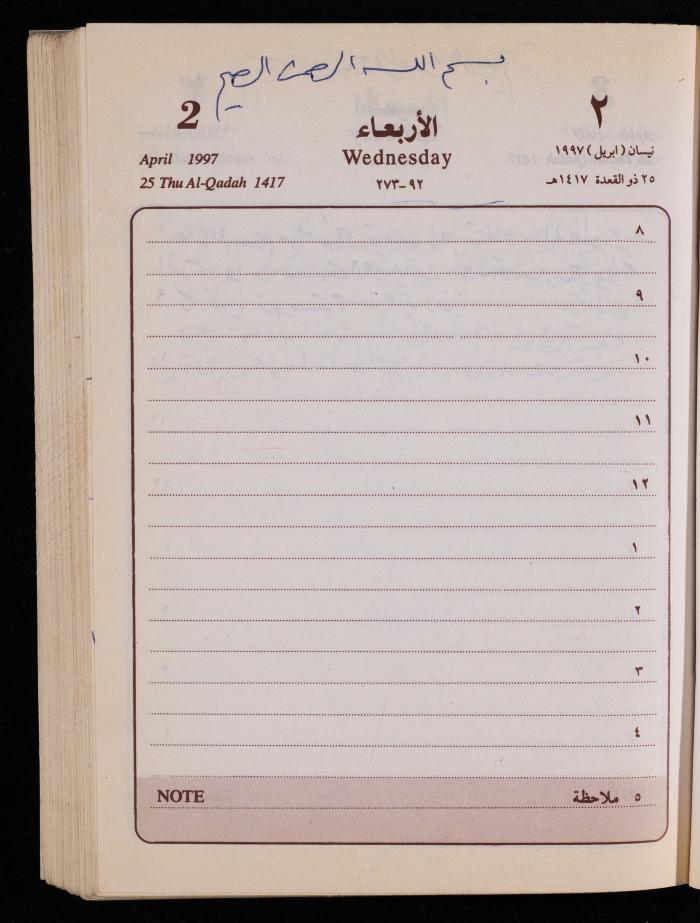 بسم الله الرحمن الرحيم
2 ٢
الأربعاء
Wednesday
April 1997 نيسان (ابريل) ١٩٩٧
25 Thu Al-Qadah 1417 ٩٢-٢٧٣ ٢٥ ذو القعدة ١٤١٧هـ
٨
٩
١٠
١١
١٢
١
٢
٣
٤
NOTE ملاحظة ٥